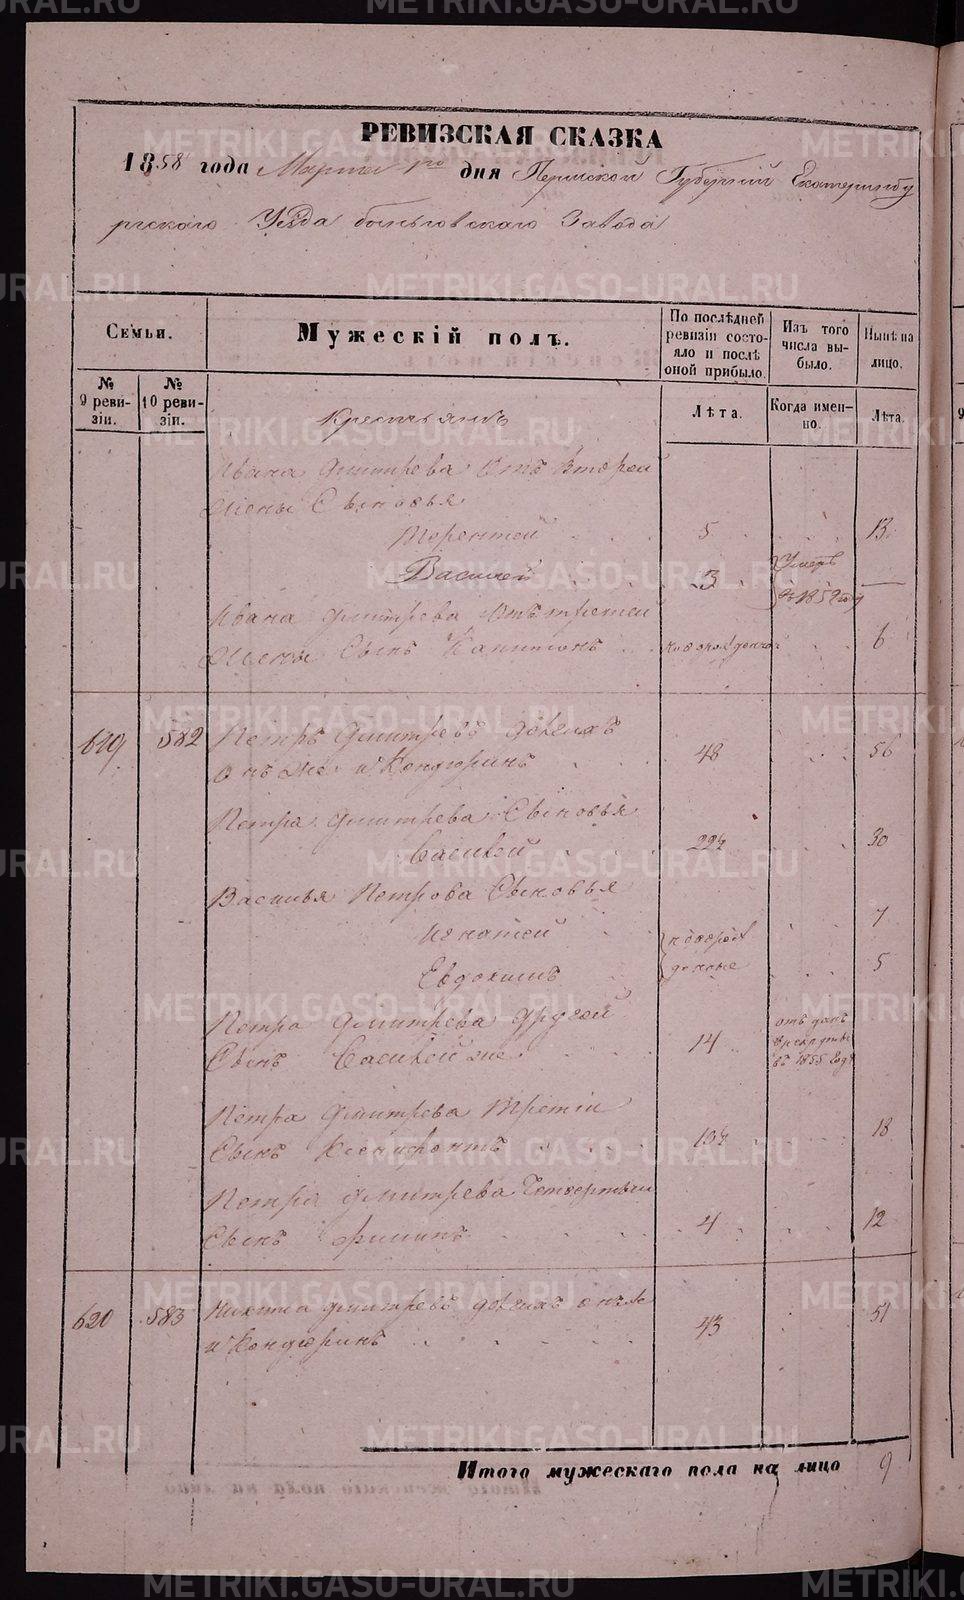 РЕВИЗСКАЯ СКАЗКА
1858 года Марта 1го дня Пермской Губерніи Екатеринбу
ргскаго Уезда Быньговскаго Завода
Семьи.
Мужескій полъ.
По послѣдней ревизіи состояло и послѣ оной прибыло.
Изъ того числа выбыло.
Нынѣ на лицо.
№ 9 ревизіи.
№ 10 ревизіи.
Лѣта.
Когда именно.
Лѣта.
Крестьянъ
Ивана Дмитрева отъ второй
жены Сыновья
Терентей 5 13
Василей 3 Умеръ въ 1852 году —
Ивана Дмитрева отъ третей
жены Сынъ Капитонъ новорожденной 6
619 582 Петръ Дмитревъ
онъ же и Кондюринъ 48 56
Петра Дмитрева Сыновья
Василей 22½ 30
Василья Петрова Сыновья
Игнатей новорож 7
Евдокимъ денные 5
Петра Дмитрева другой
Сынъ Василей же 14 отданъ в рекруты въ 1855 году
Петра Дмитрева третій
Сынъ Ксенофонтъ 10½ 18
Петра Дмитрева Четвертый
Сынъ Филипъ 4 12
620 583 Никита Дмитревъ онъ же
и Кондюринъ 43 51
Итого мужескаго пола на лицо 9
METRIKI.GASO-URAL.RU